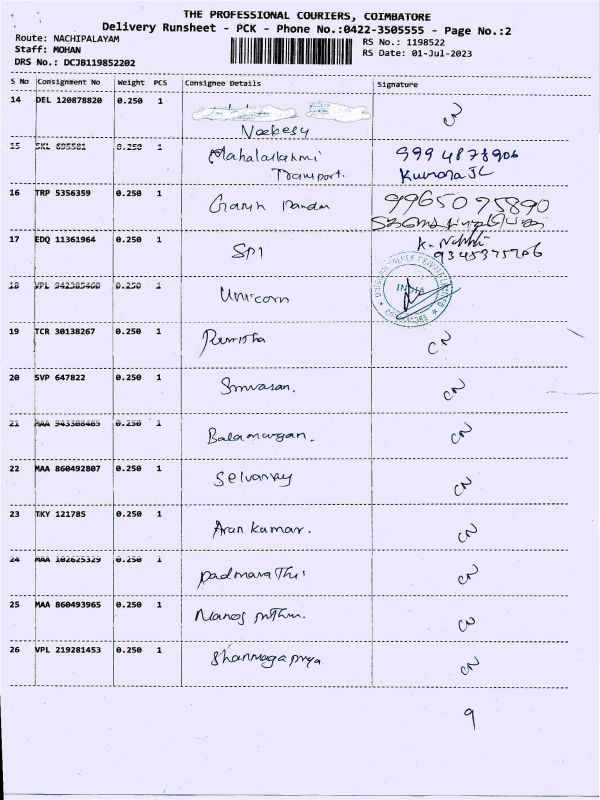 THE PROFESSIONAL COURIERS, COIMBATORE
Delivery Runsheet - PCK - Phone No.:0422-3505555 - Page No.:2
Route: NACHIPALAYAM
RS No.: 1198522
Staff: MOHAN
RS Date: 01-Jul-2023
DRS No.: DCJB119852202
S No Consignment No Weight PCS Consignee Details Signature
14 DEL 120878820 0.250 1 CN
15 SKL 695581 0.250 1 Mahalakshmi 9994878906
Transport.
16 TRP 5356359 0.250 1 9965075890
17 EDQ 11361964 0.250 1 SPI
18 VPL 942385460 0.250 1 Unicorn
INDIA
19 TCR 30138267 0.250 1 CN
20 SVP 647822 0.250 1 Srinivasan. CN
21 MAA 943308465 0.250 1 Balamurugan. CN
22 MAA 860492807 0.250 1 CN
23 TKY 121785 0.250 1 Arun kumar. CN
24 MAA 102625329 0.250 1 CN
25 MAA 860493965 0.250 1 CN
26 VPL 219281453 0.250 1 CN
9